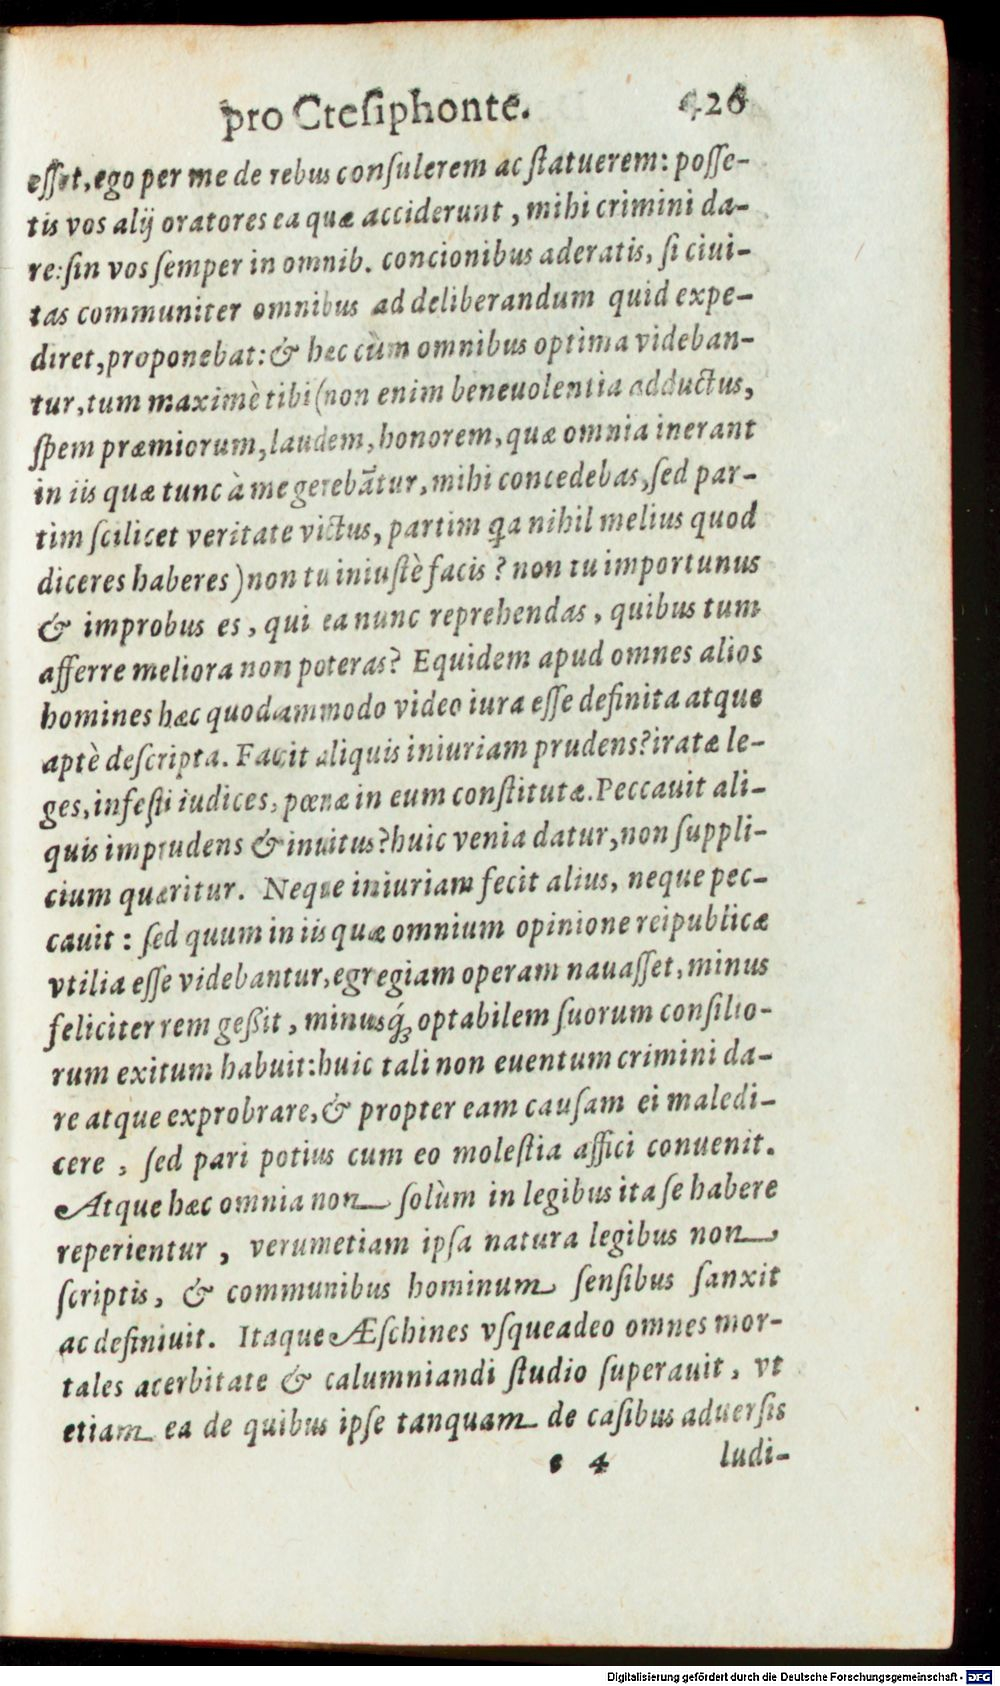 pro Ctesiphonte. 426
esset, ego per me de rebus consulerem ac statuerem: posse-
tis vos alij oratores ea quæ acciderunt, mihi crimini da-
re: sin vos semper in omnib. concionibus aderatis, si ciui-
tas communiter omnibus ad deliberandum quid expe-
diret, proponebat: & hæc cùm omnibus optima videban-
tur, tum maximè tibi (non enim beneuolentia adductus,
spem præmiorum, laudem, honorem, quæ omnia inerant
in iis quæ tunc à me gerebātur, mihi concedebas, sed par-
tim scilicet veritate victus, partim ꝗa nihil melius quod
diceres haberes) non tu iniustè facis? non tu importunus
& improbus es, qui ea nunc reprehendas, quibus tum
afferre meliora non poteras? Equidem apud omnes alios
homines hæc quodammodo video iura esse definita atque
aptè descripta. Facit aliquis iniuriam prudens? iratæ le-
ges, infesti iudices, pœnæ in eum constitutæ. Peccauit ali-
quis imprudens & inuitus? huic venia datur, non suppli-
cium quæritur. Neque iniuriam fecit alius, neque pec-
cauit: sed quum in iis quæ omnium opinione reipublicæ
vtilia esse videbantur, egregiam operam nauasset, minus
feliciter rem geßit, minusq́; optabilem suorum consilio-
rum exitum habuit: huic tali non euentum crimini da-
re atque exprobrare, & propter eam causam ei maledi-
cere, sed pari potius cum eo molestia affici conuenit.
Atque hæc omnia non solùm in legibus ita se habere
reperientur, verumetiam ipsa natura legibus non
scriptis, & communibus hominum sensibus sanxit
ac definiuit. Itaque Æschines vsqueadeo omnes mor-
tales acerbitate & calumniandi studio superauit, vt
etiam ea de quibus ipse tanquam de casibus aduersis
e 4 ludi-
Digitalisierung gefördert durch die Deutsche Forschungsgemeinschaft - DFG